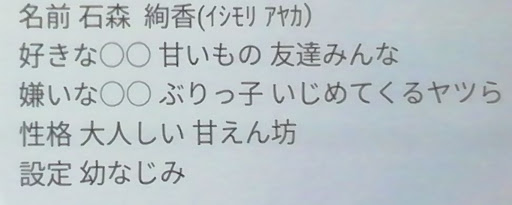 名前 石森 絢香(ｲｼﾓﾘ ｱﾔｶ)
好きな○○ 甘いもの 友達みんな
嫌いな○○ ぶりっ子 いじめてくるヤツら
性格 大人しい 甘えん坊
設定 幼なじみ